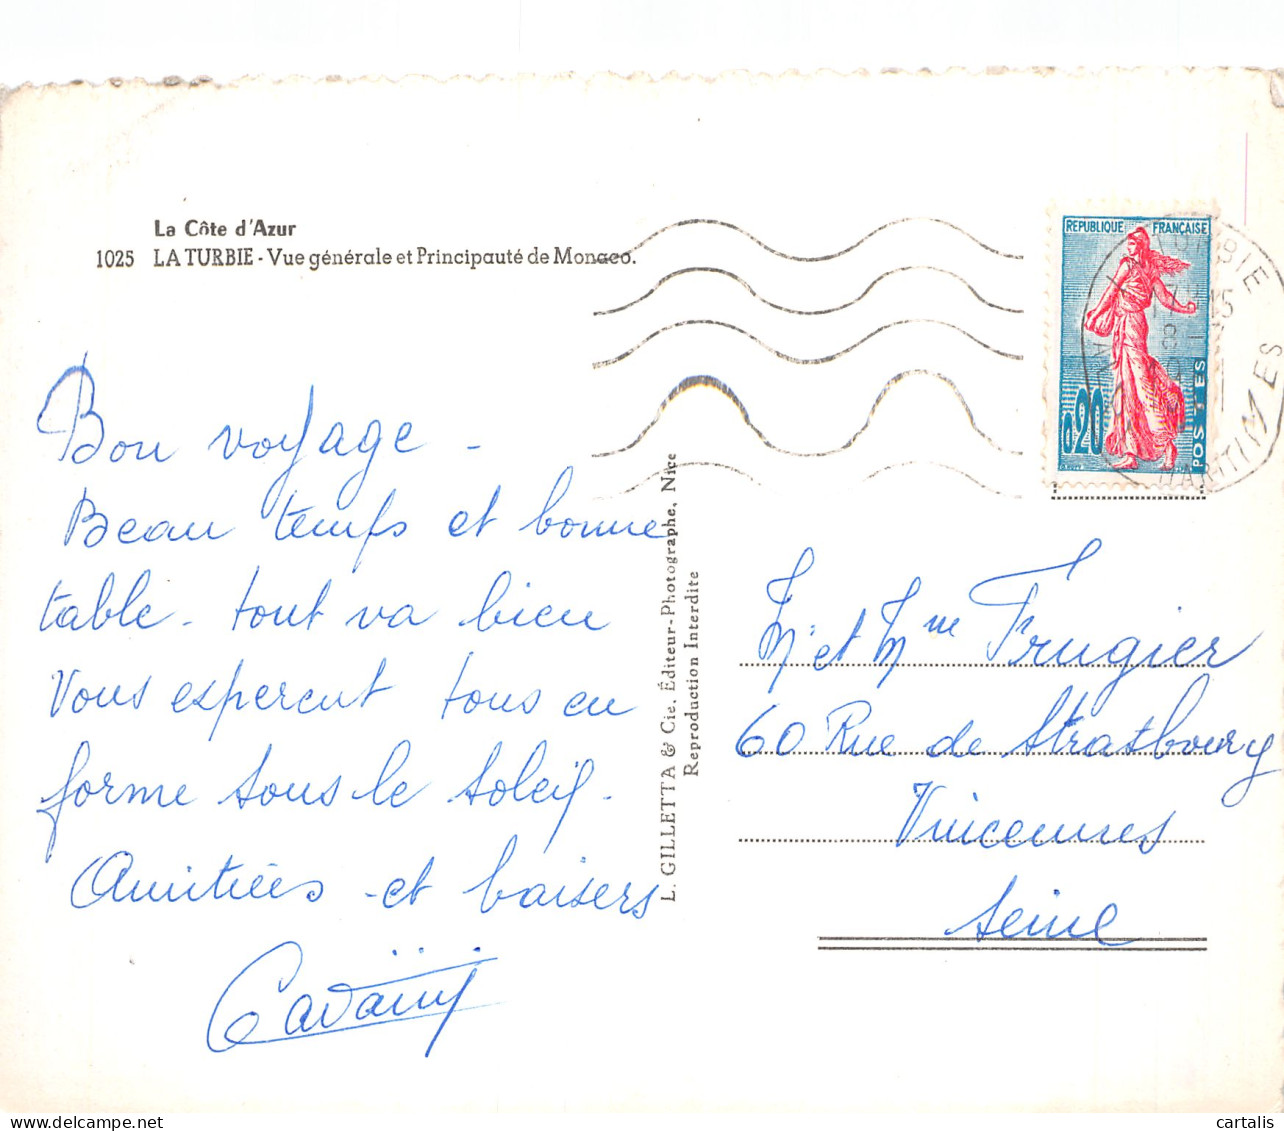 La Côte d'Azur
1025 LA TURBIE - Vue générale et Principauté de Monaco.
REPUBLIQUE FRANÇAISE
0,20
POSTES
LA TURBIE
MARITIMES
Bon voyage -
Beau temps et bonne
table - tout va bien
Vous espèrent tous en
forme sous le soleil.
Amitiées et baisers
L. GILLETTA & Cie, Éditeur-Photographe, Nice
Reproduction Interdite
Mr et Mme Frugier
60 Rue de Strasbourg
Vincennes
Seine
cartalis
delcampe.net